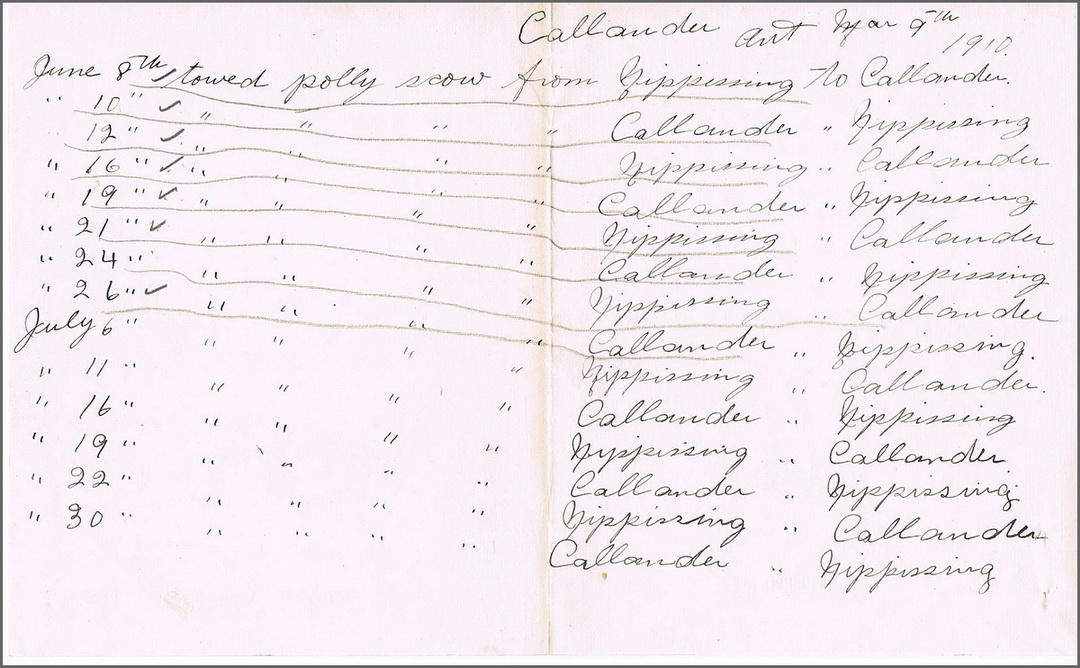 Callander Ont Mar 9th
1910
June 8th ✓ towed polly scow from Nippissing to Callander.
" 10 " ✓ " " " " Callander " Nippissing
12 " ✓ " " " " Nippissing " Callander
" 16 " ✓ " " " " Callander " Nippissing
" 19 " ✓ " " " " Nippissing " Callander
" 21 " ✓ " " " " Callander " Nippissing
" 24 " " " " " Nippissing " Callander
" 26 " ✓ " " " " Callander " Nippissing.
July 6 " " " " " Nippissing " Callander.
" 11 " " " " " Callander " Nippissing
" 16 " " " " " Nippissing " Callander
" 19 " " " " " Callander " Nippissing
" 22 " " " " " Nippissing " Callander
" 30 " " " " " Callander " Nippissing